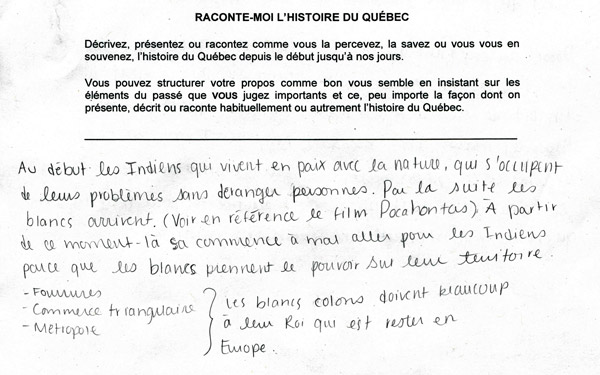 RACONTE-MOI L'HISTOIRE DU QUÉBEC
Décrivez, présentez ou racontez comme vous la percevez, la savez ou vous vous en
souvenez, l'histoire du Québec depuis le début jusqu'à nos jours.
Vous pouvez structurer votre propos comme bon vous semble en insistant sur les
éléments du passé que vous jugez importants et ce, peu importe la façon dont on
présente, décrit ou raconte habituellement ou autrement l'histoire du Québec.
Au début les Indiens qui vivent en paix avec la nature, qui s'occupent
de leurs problèmes sans déranger personnes. Par la suite les
blancs arrivent. (Voir en référence le film Pocahontas) À partir
de ce moment-là sa commence à mal aller pour les Indiens
parce que les blancs prennent le pouvoir sur leur territoire.
- Fourrures
- Commerce triangulaire
- Métropole
Les blancs colons doivent beaucoup
à leur Roi qui est rester en
Europe.